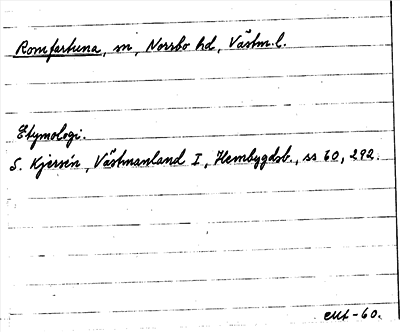 Romfartuna, sn, Norrbo hd, Västm.l.
Etymologi.
S. Kjersén, Västmanland I, Hembygdsb., ss 60, 292.
-60.